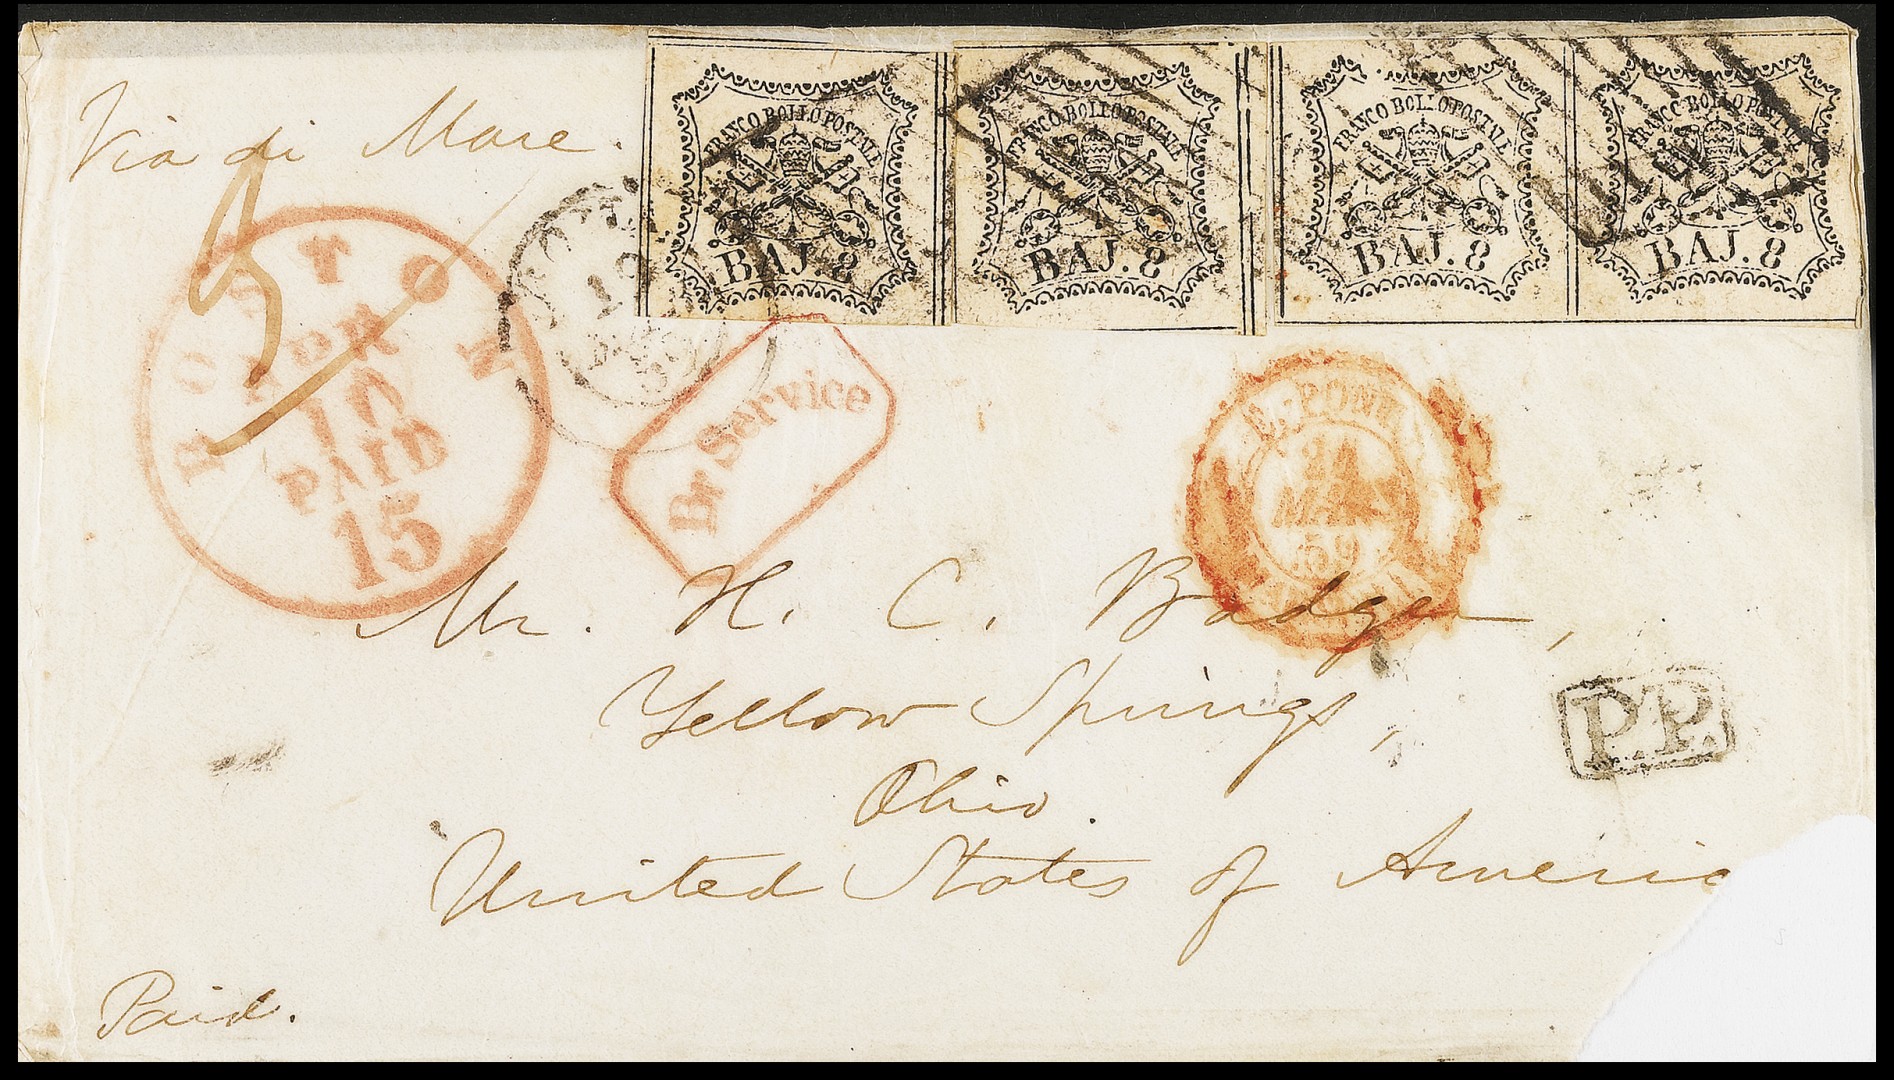 Via di Mare.
FRANCO BOLLO POSTALE
BAJ. 8
FRANCO BOLLO POSTALE
BAJ. 8
FRANCO BOLLO POSTALE
BAJ. 8
FRANCO BOLLO POSTALE
BAJ. 8
BOSTON
APR
10
PAID
15
Br Service
24
MARS
59
Mr. H. C. Badger,
Yellow Springs,
Ohio.
United States of Americ
P.P.
Paid.